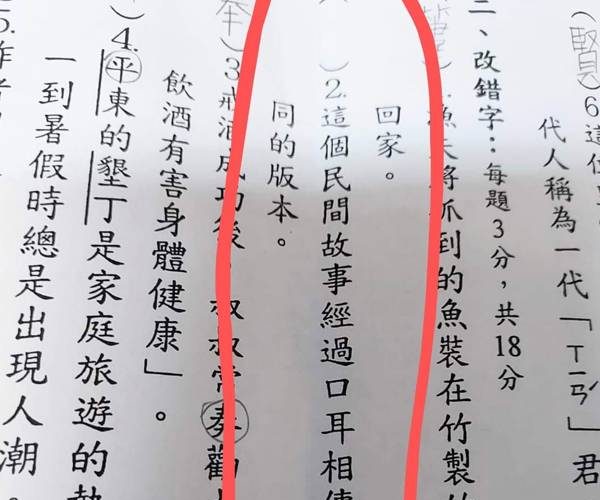 (賢)6.這位
代人稱為一代「ㄒㄧㄢˊ」君
二、改錯字：每題3分，共18分
.漁夫將抓到的魚裝在竹製
回家。
( )2.這個民間故事經過口耳相傳
同的版本。
)3.戒酒成功後，叔叔常奏勸
飲酒有害身體健康」。
)4.平東的墾丁是家庭旅遊的熱
一到暑假時總是出現人潮。
5.作者